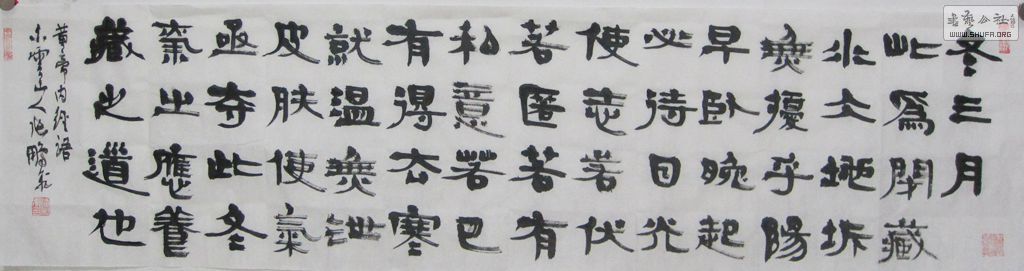 冬三月
此為閉藏
水地坼
無擾乎陽
早卧晚起
必待日光
使志若伏
若匿若有
私意若已
有得去寒
就温無泄
皮肤使氣
亟夺此冬
氣之應養
藏之道也
黄帝内經語
小雲山人
書藝公社
WWW.SHUFA.ORG